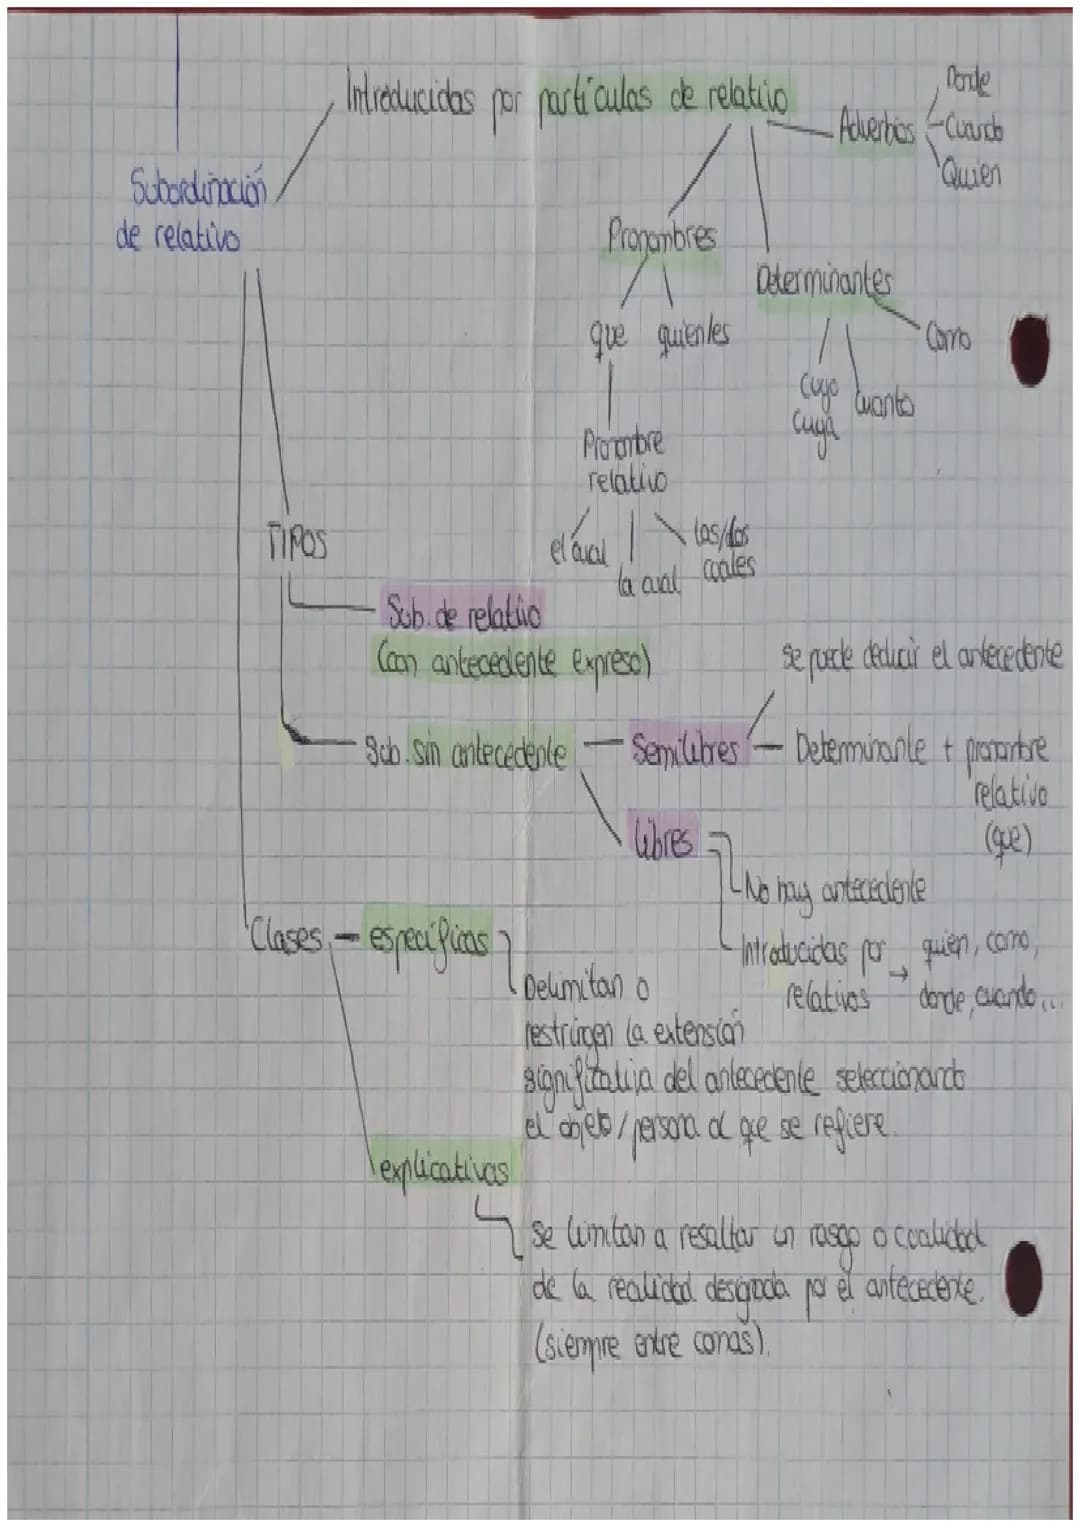 Introducidas por partículas de relativo
Adverbios
Donde
Cuando
Quien
Subordinación
de relativo
Pronombres
que
quien/es
Pronombre
relativo
el cual
la cual
las/los
cuales
Determinantes
Como
Cuyo
Cuya
Cuanto
TIPOS
Sub. de relativo
(con antecedente expreso)
Sub. sin antecedente
Semilibres
se puede deducir el antecedente
Determinante + pronombre
relativo
(que)
libres
No hay antecedente
Introducidas por
relativos
→
quien, como,
donde, cuando...
Clases
específicas
Delimitan o
restringen la extensión
significativa del antecedente seleccionando
el objeto/persona al que se refiere.
explicativas
Se limitan a resaltar un rasgo o coalidad
de la realidad designada por el antecedente.
(siempre entre comas).